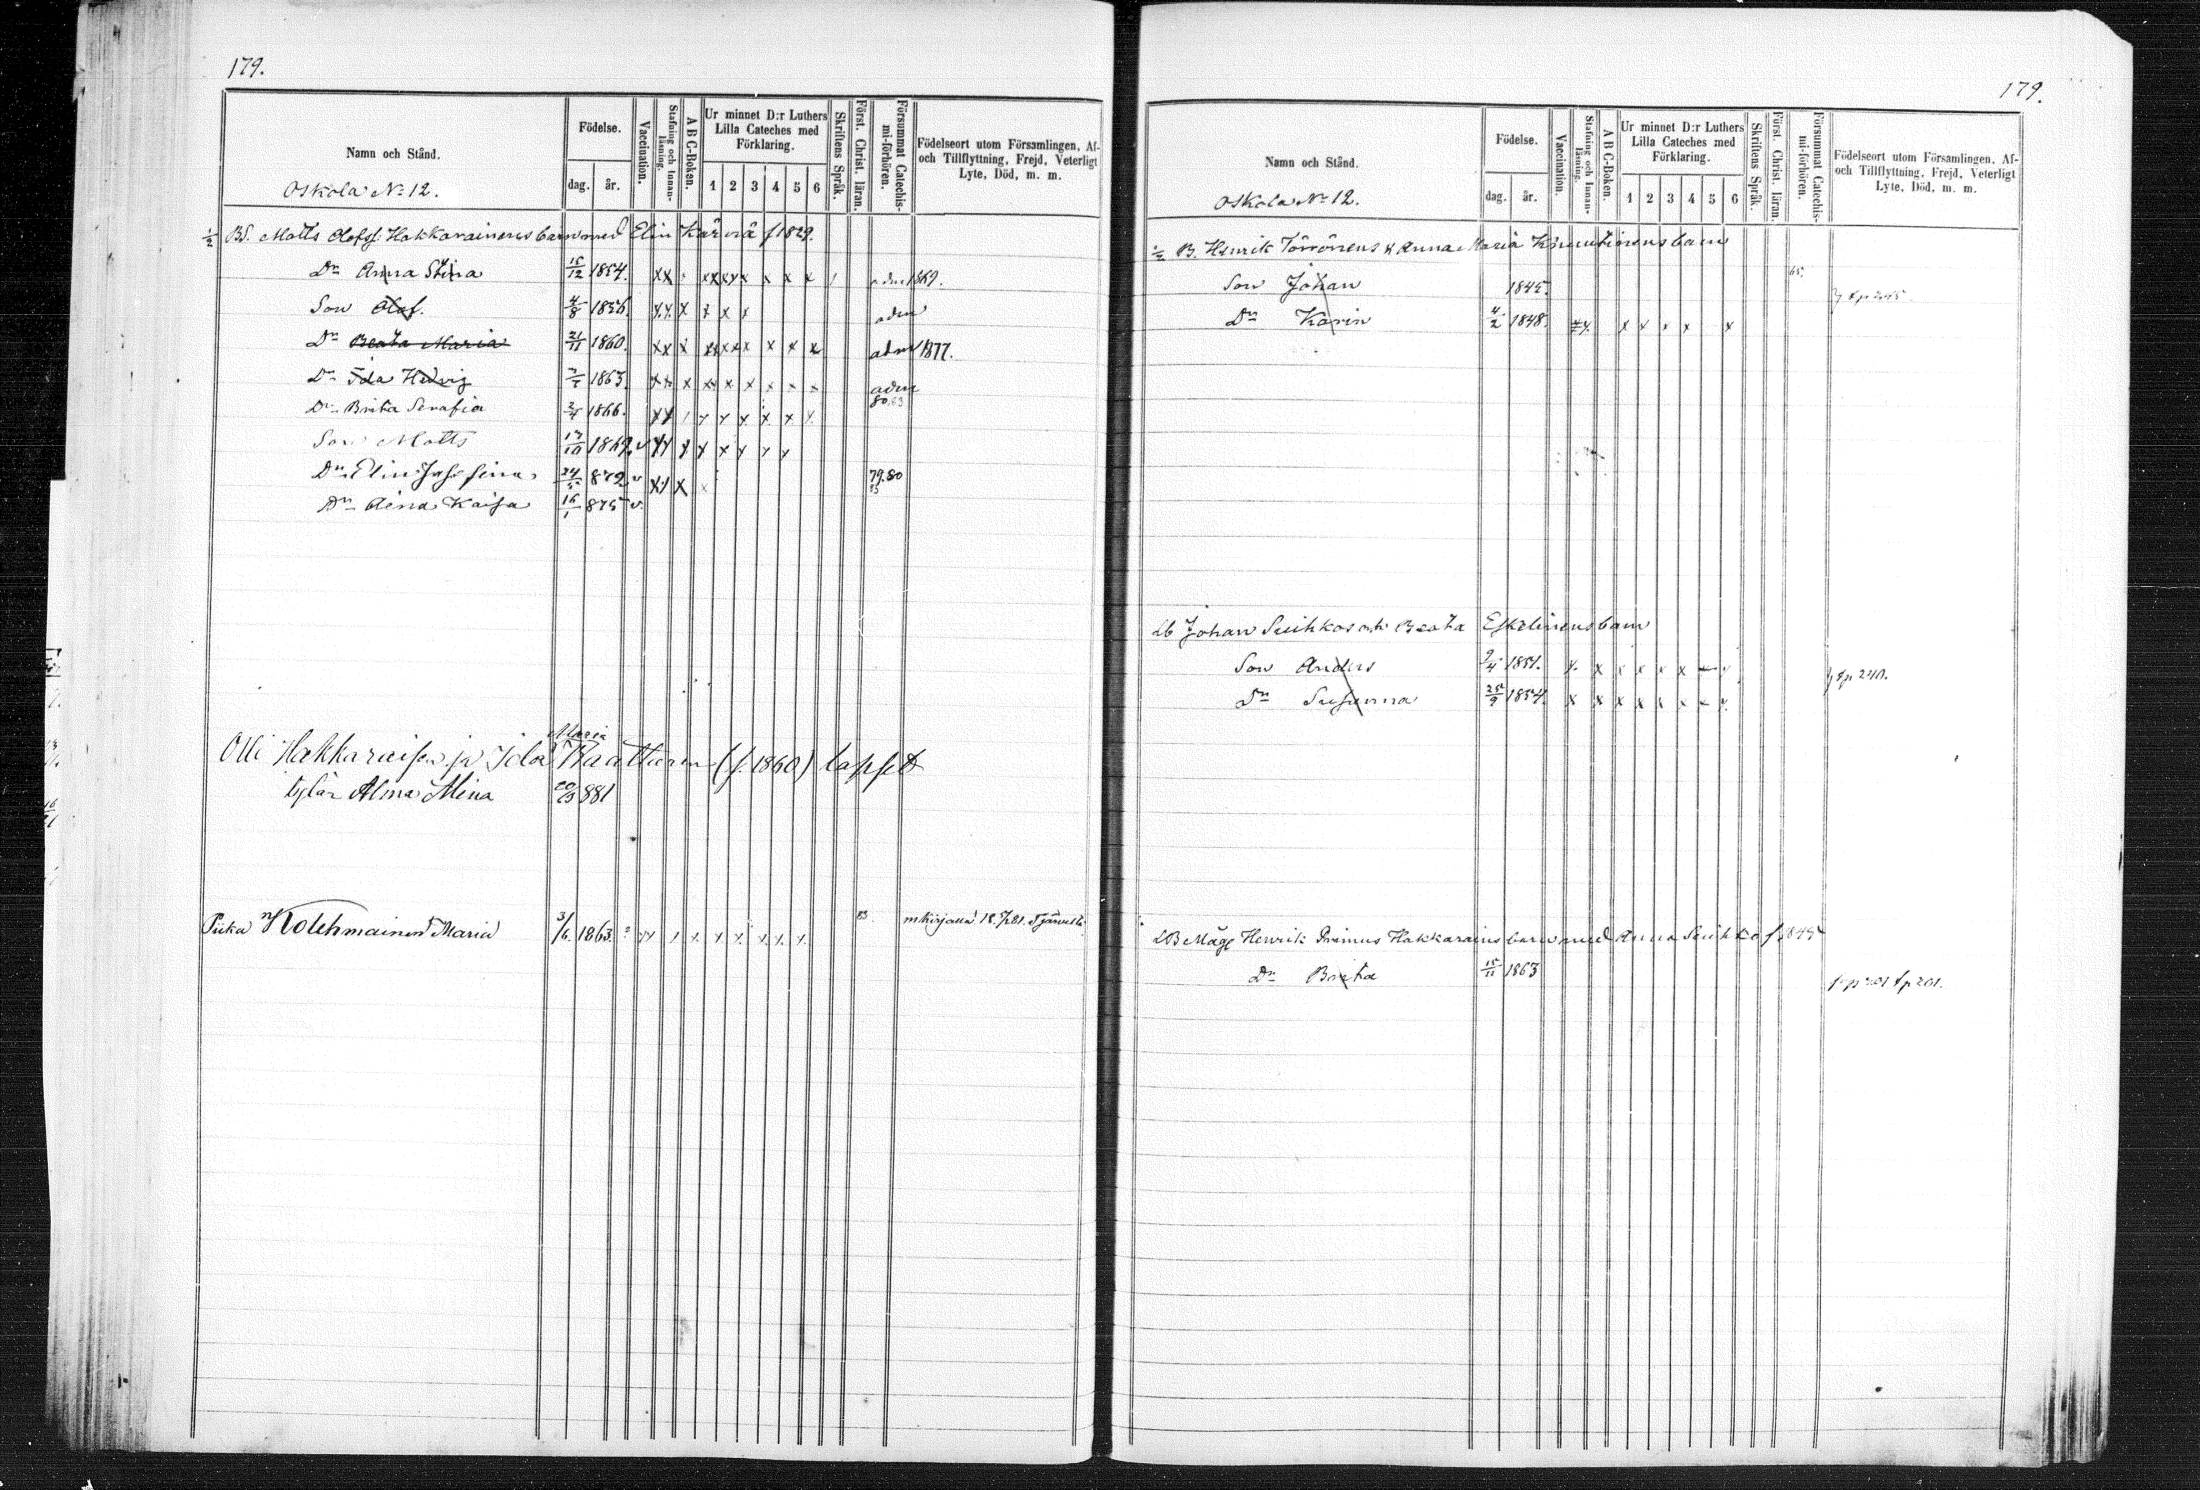 179.
Namn och Stånd.
Födelse.
dag. år.
Vaccination.
Stafning och Innan-läsning.
A B C-Boken.
Ur minnet D:r Luthers Lilla Cateches med Förklaring.
1 2 3 4 5 6
Skriftens Språk.
Först. Christ. läran.
Försummat Catechis-mi-förhören.
Födelseort utom Församlingen, Af- och Tillflyttning, Frejd, Veterligt Lyte, Död, m. m.
Oskola No 12.
1/2 Bd. Matts Olofsf. Hakkarainens barn med Elin Kärnä f 1829.
Dr Anna Stina 15/12 1854. x x x x x x x x x adm 1869.
Son Olof. 4/8 1856. x x x x x x adm
Dr Beata Maria 21/11 1860. x x x x x x x x x x adm 1877.
Dr Ida Hedvig 1863. x x x x x x x adm
Dr Brita Serafia 2/4 1866. x x x x x x x x 80.83
Son Matts 17/10 1869. v x x x x x x x x
Dr Elin Josefina 24/5 872 v x x x 79.80 83
Dr Aina Kaisa 16/1 875 v.
Olli Hakkaraisen ja Ida Maria Kaattarin (f. 1860) lapset
tytär Alma Miina 20/3 881
Piika Kolehmainen Maria 3/6. 1863. x x x x x x x x 83. m.kirjalla 18 /81.
179.
Namn och Stånd.
Födelse.
dag. år.
Vaccination.
Stafning och Innan-läsning.
A B C-Boken.
Ur minnet D:r Luthers Lilla Cateches med Förklaring.
1 2 3 4 5 6
Skriftens Språk.
Först. Christ. läran.
Försummat Catechis-mi-förhören.
Födelseort utom Församlingen, Af- och Tillflyttning, Frejd, Veterligt Lyte, Död, m. m.
Oskola No 12.
1/2 B. Henrik Törrönens & Anna Maria Kinnuinens barn
Son Johan 1845. 65.
Dr Karin 4/2 1848. x x x x x x
Lb Johan Suihkos och Beata Eskelinens barn
Son Anders 9/4 1851. x x x x x x x fp 240.
Dr Susanna 25/9 1854. x x x x x x x x
LB Måg Henrik Primus Hakkarains barn med Anna Suihko f 1845
Dr Brita 15/11 1863 fp 201.